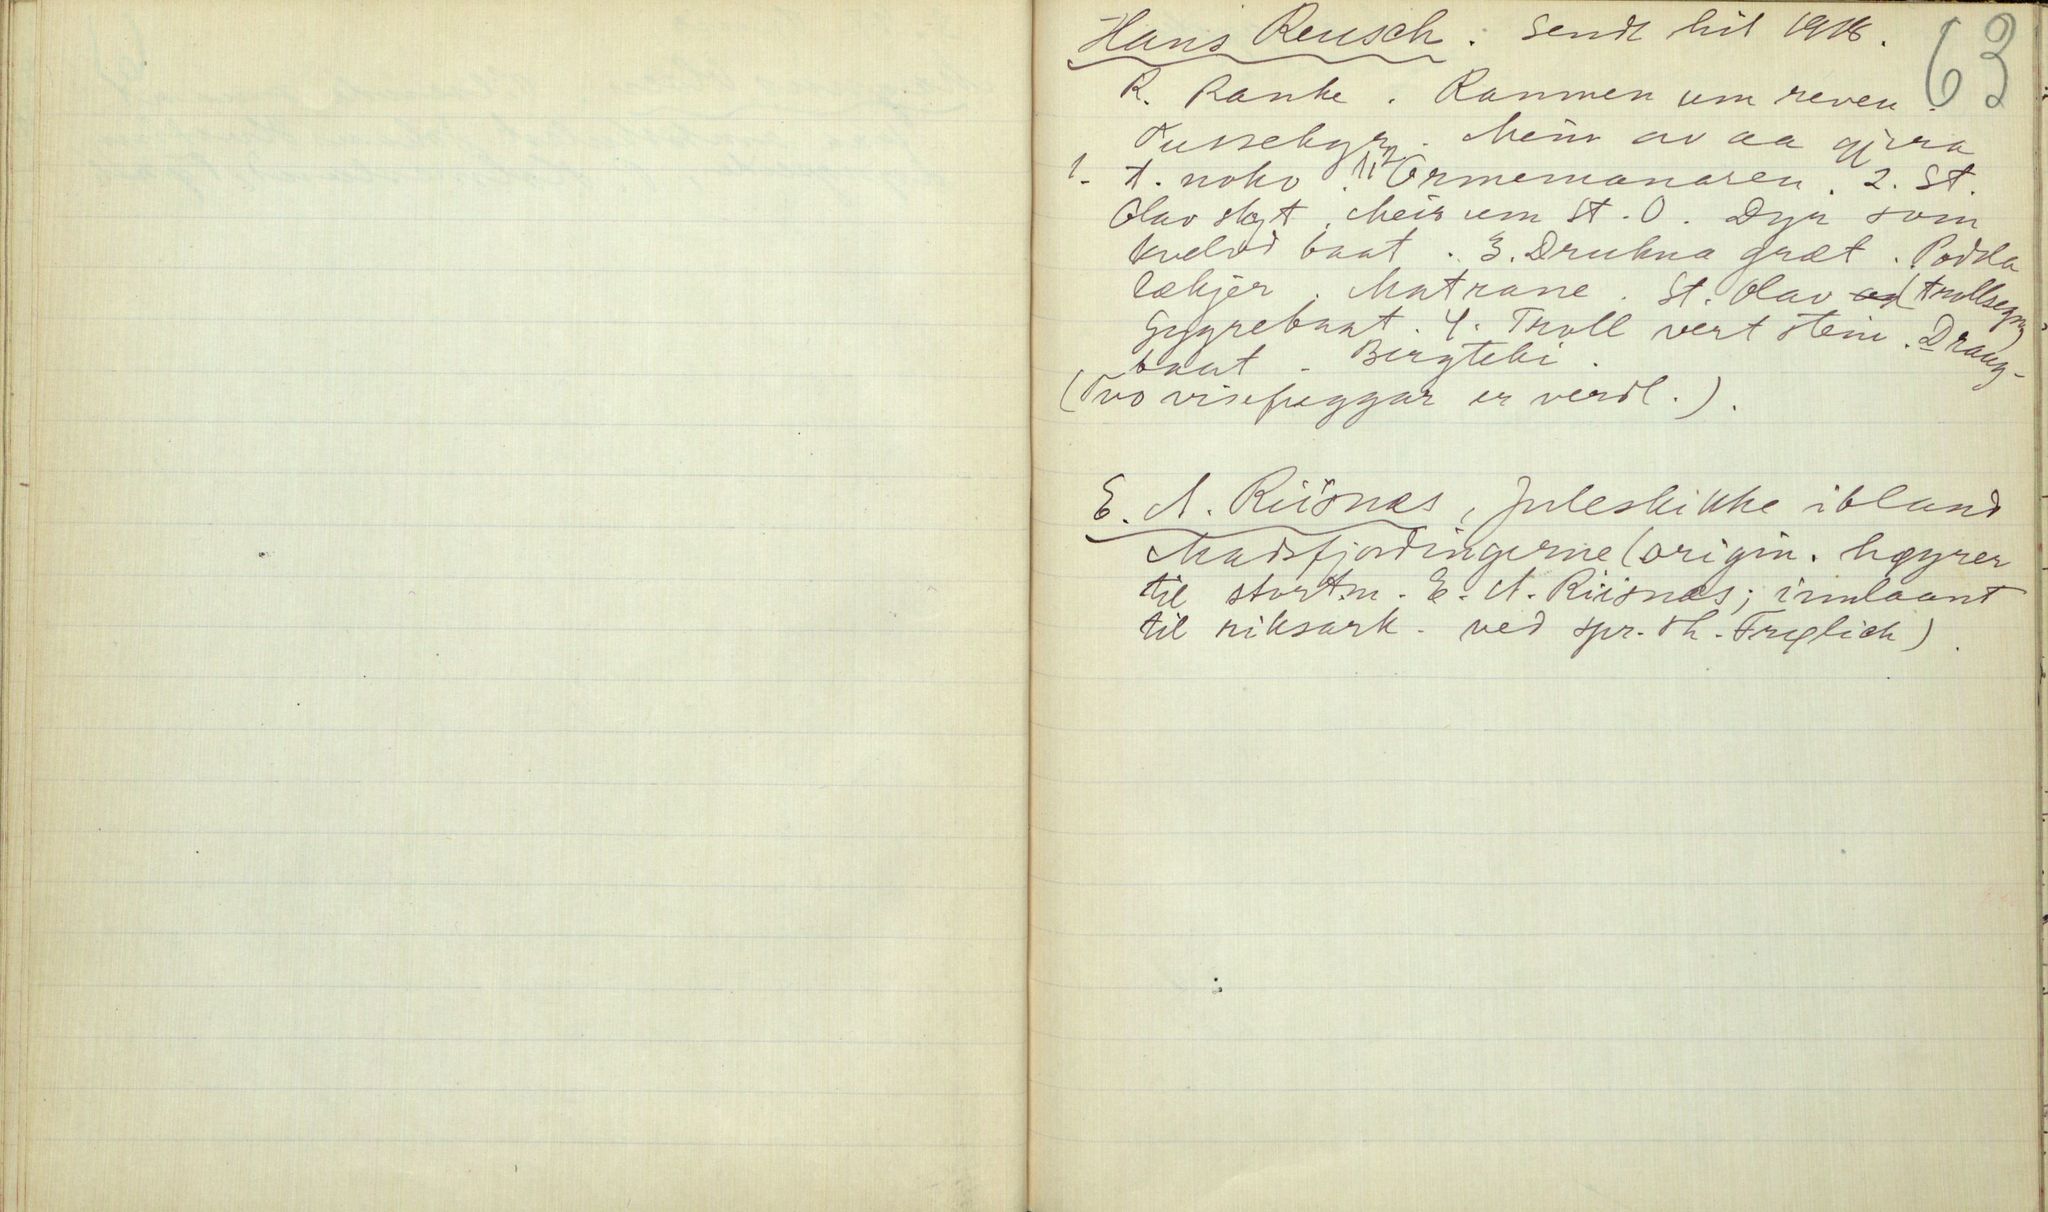 63
Hans Reusch. Sendt hit 1918.
R. Ranke. Rammen um reven.
Tussekyr. Mein av aa gjera
1. t. noko. Ormemanaren. 2. St.
Olav skyt. Meir um St. O. Dyr som
kvelvd baat. 3. Drukna græt. Podda
lækjer. Matrane. St. Olav (trollsegn)
Gygrebaat. 4. Troll vert stein. Draug-
baat. Bergteki.
(Tvo viseheggar er verdl.).
E. A. Riisnæs, Juleskikke ibland
Madsfjordingerne (origin. høyrer
til stortm. E. A. Riisnæs; innlaant
til riksark. ved spr. Th. Frøglich).